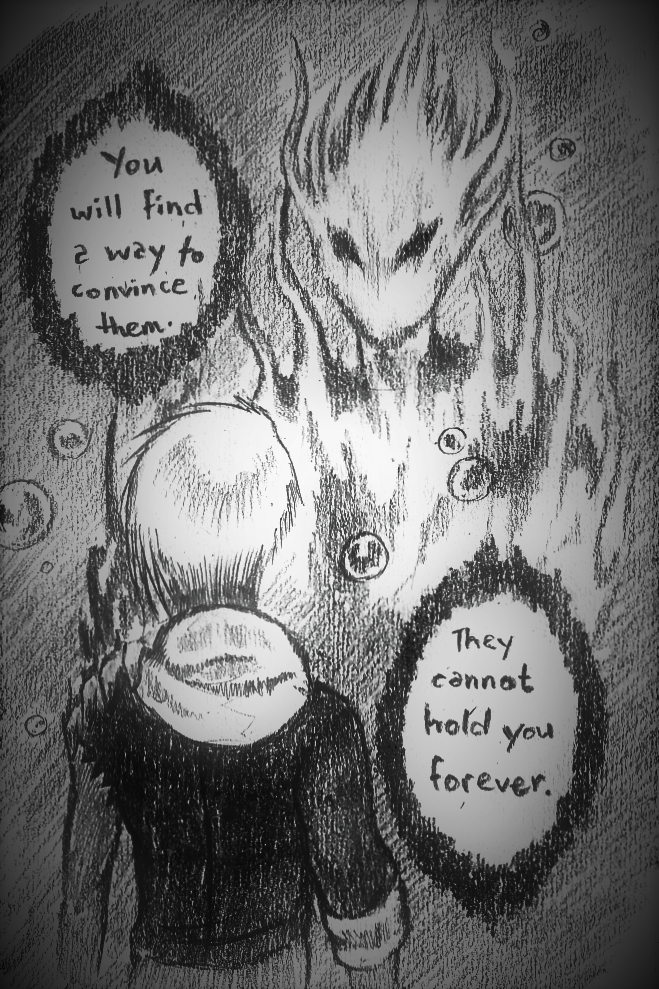 You
will find
a way to
convince
them.
They
cannot
hold you
forever.